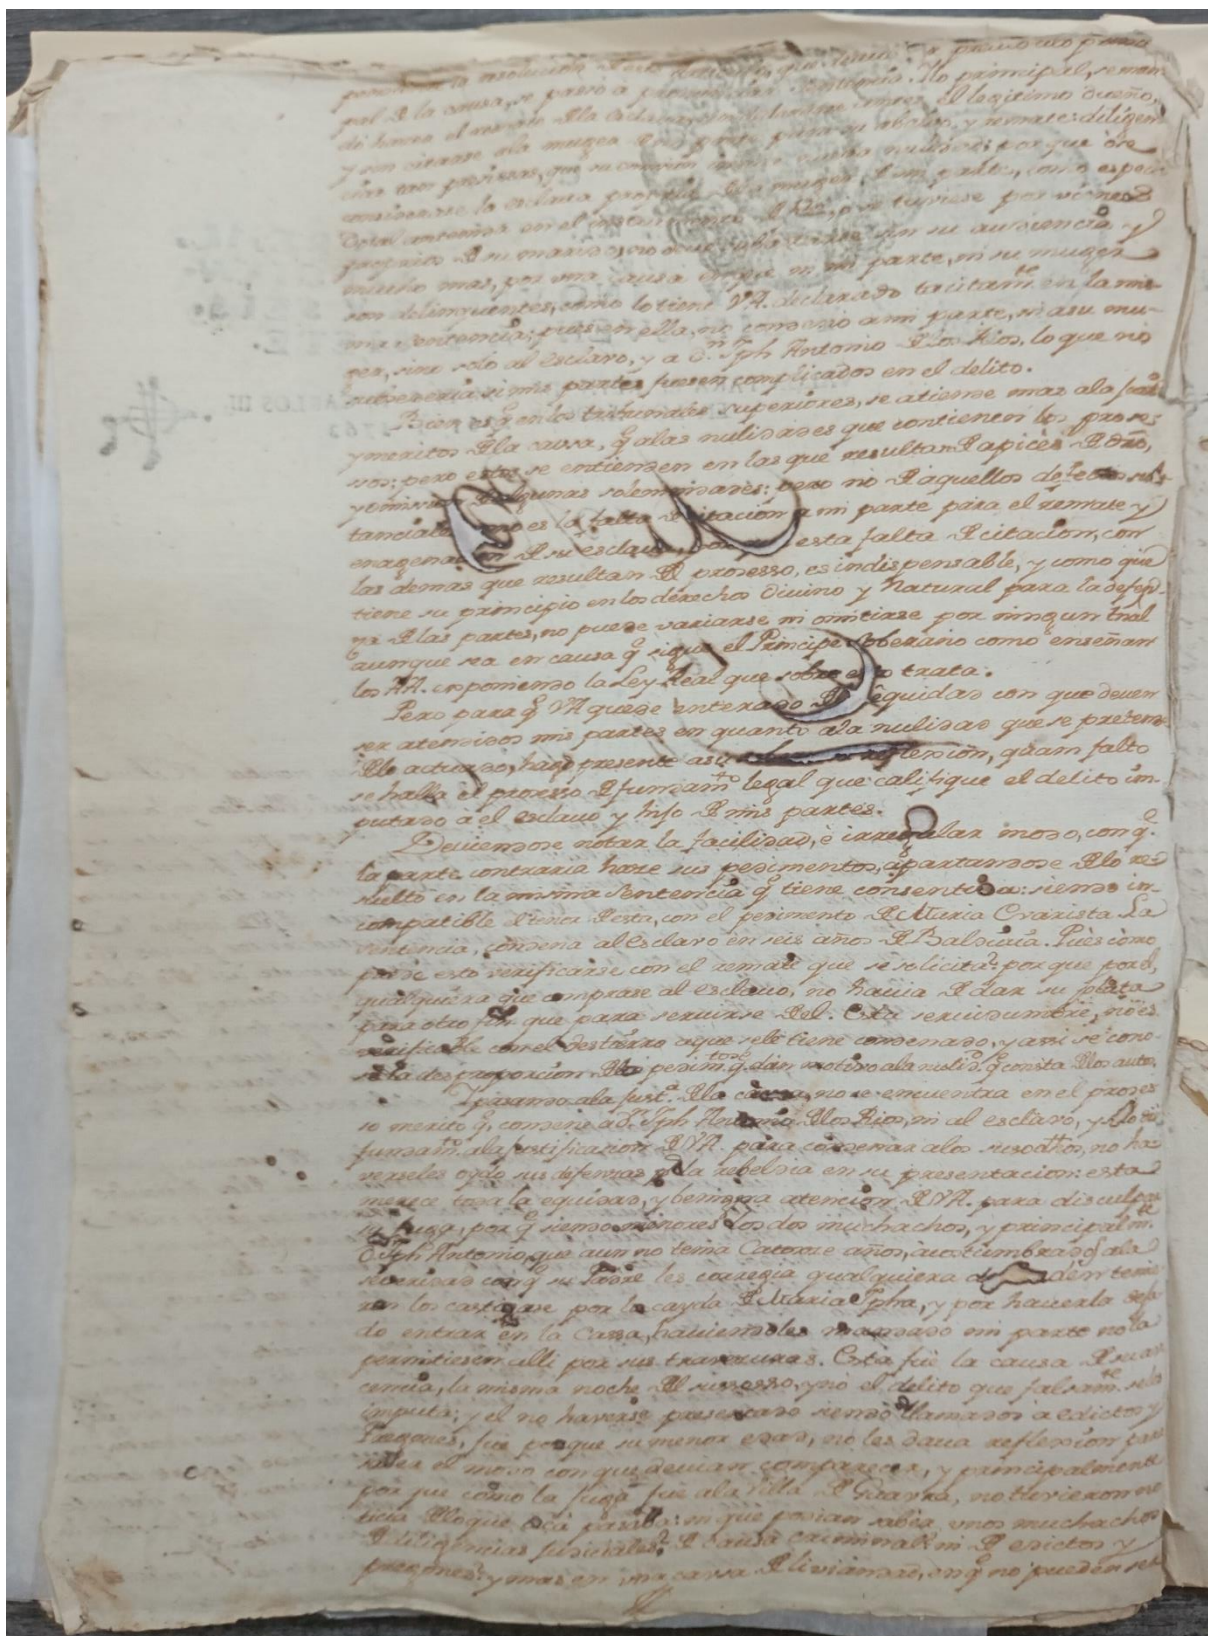 la resolucion
pal de la causa, se pasó a pronunciar sentencia. lo principal, se man
do hacer el remate de la esclava el legitimo dueño,
y sin citarse a la muger de mi parte para su abalúo, y remate: diligen
cias tan precissas, que su omicion nulidad; por que ôra
considerase la esclava propria de la muger de mi parte, como
en el instrumento ô se tuviese por vienes
proprios de su marido, no deve sin su audiencia y
mucho mas, por una causa en que ni mi parte, ni su muger
son delinquentes, como lo tiene VA. declarado tacitam.te en la mis-
ma sentencia; pues en ella, no condenó a mi parte, ni a su mu-
ger, sino solo al esclavo, y a D.n Jph Antonio de los Rios, lo que no
subcederia si mis partes fuesen complicados en el delito.
Bien es q̃ en los tribunales superiores, se atiende mas a la just.a
y meritos de la causa, q̃ a las nulidades que contienen los proses
sos; pero estos se entienden en las que resultan de apices de dro,
y omision de algunas solemnidades: pero no de aquellos defectos subs
tanciales es la falta de citacion a mi parte para el remate y
enagenacion de su esclavo, esta falta de citacion, con
las demas que resultan del prosesso, es indispensable, y como que
tiene su principio en los derechos Divino y Natural para la defen-
za de las partes, no puede variarse ni omitirse por ningun tr̃ial
aunque sea en causa q̃ sigue el Principe Soberano como enseñan
los AA. exponiendo la Ley Real que sobre esto trata.
Pero para q̃ VA quede enterado de equidad con que deven
ser atendidos mis partes en quanto a la nulidad que se pretende
de lo actuado, hago presente a su reflexion, quam falto
se halla el prosesso de fundam.to legal que califique el delito im-
putado a el esclavo y hijo de mis partes.
Deviendose notar la facilidad, è irregular modo, con q̃
la parte contraria haze sus pedimentos, apartandose de lo re-
suelto en la misma sentencia q̃ tiene consentida: siendo in-
compatible de esta, con el pedimento de Maria Evarista. La
sentencia, condena al esclavo en seis años de Baldivia. Pues como
puede esto verificarse con el remate que se solicita? por que por el,
qualquiera que comprase al esclavo, no havia de dar su plata
para otro fin que para servirse del. Esta servidumbre, no es
verificable con el destierro a que se le tiene condenado, y assi se cono-
se la desproporcion de los pedim.tos q̃ dan motivo a la nulid.d q̃ consta de los autos.
pasando a la just.a de la causa, no se encuentra en el proses
so merito q̃ condene a D.n Jph Antonio de los Rios, ni al esclavo, y
fundam.to a la justificacion de VA. para condenar a los susodhos, no ha
verseles oydo sus defensas y la rebeldia en su presentacion: esta
merece toda la equidad, y benigna atencion de VA. para disculpar
su fuga, por q̃ siendo menores los dos muchachos, y principalm.te
D.n Jph Antonio, que aun no tenia Catorze años, acostumbrados a la
severidad con q̃ su Padre les corregia qualquiera
ron los castigase por la cayda de Maria Jpha, y por haverla deja
do entrar en la Cassa, haviendoles mandado mi parte no la
permitiesen alli por sus travesuras. Esta fue la causa de su au
cencia, la misma noche del susesso, y no el delito que falsam.te se les
imputa; y el no haverse presentado siendo llamados a edictos y
Pregones, fue porque su menor edad, no les dava reflexion para
saber el modo con que devian comparecer, y principalmente
por que como la fuga fue a la Villa de Guavra, no tuvieron no
ticia de lo que acá pasaba: ni que podian saber unos muchachos
de diligencias judiciales? de causa criminal? ni de edictos y
pregones? y mas en una causa de liviandad, en q̃ no pueden ser